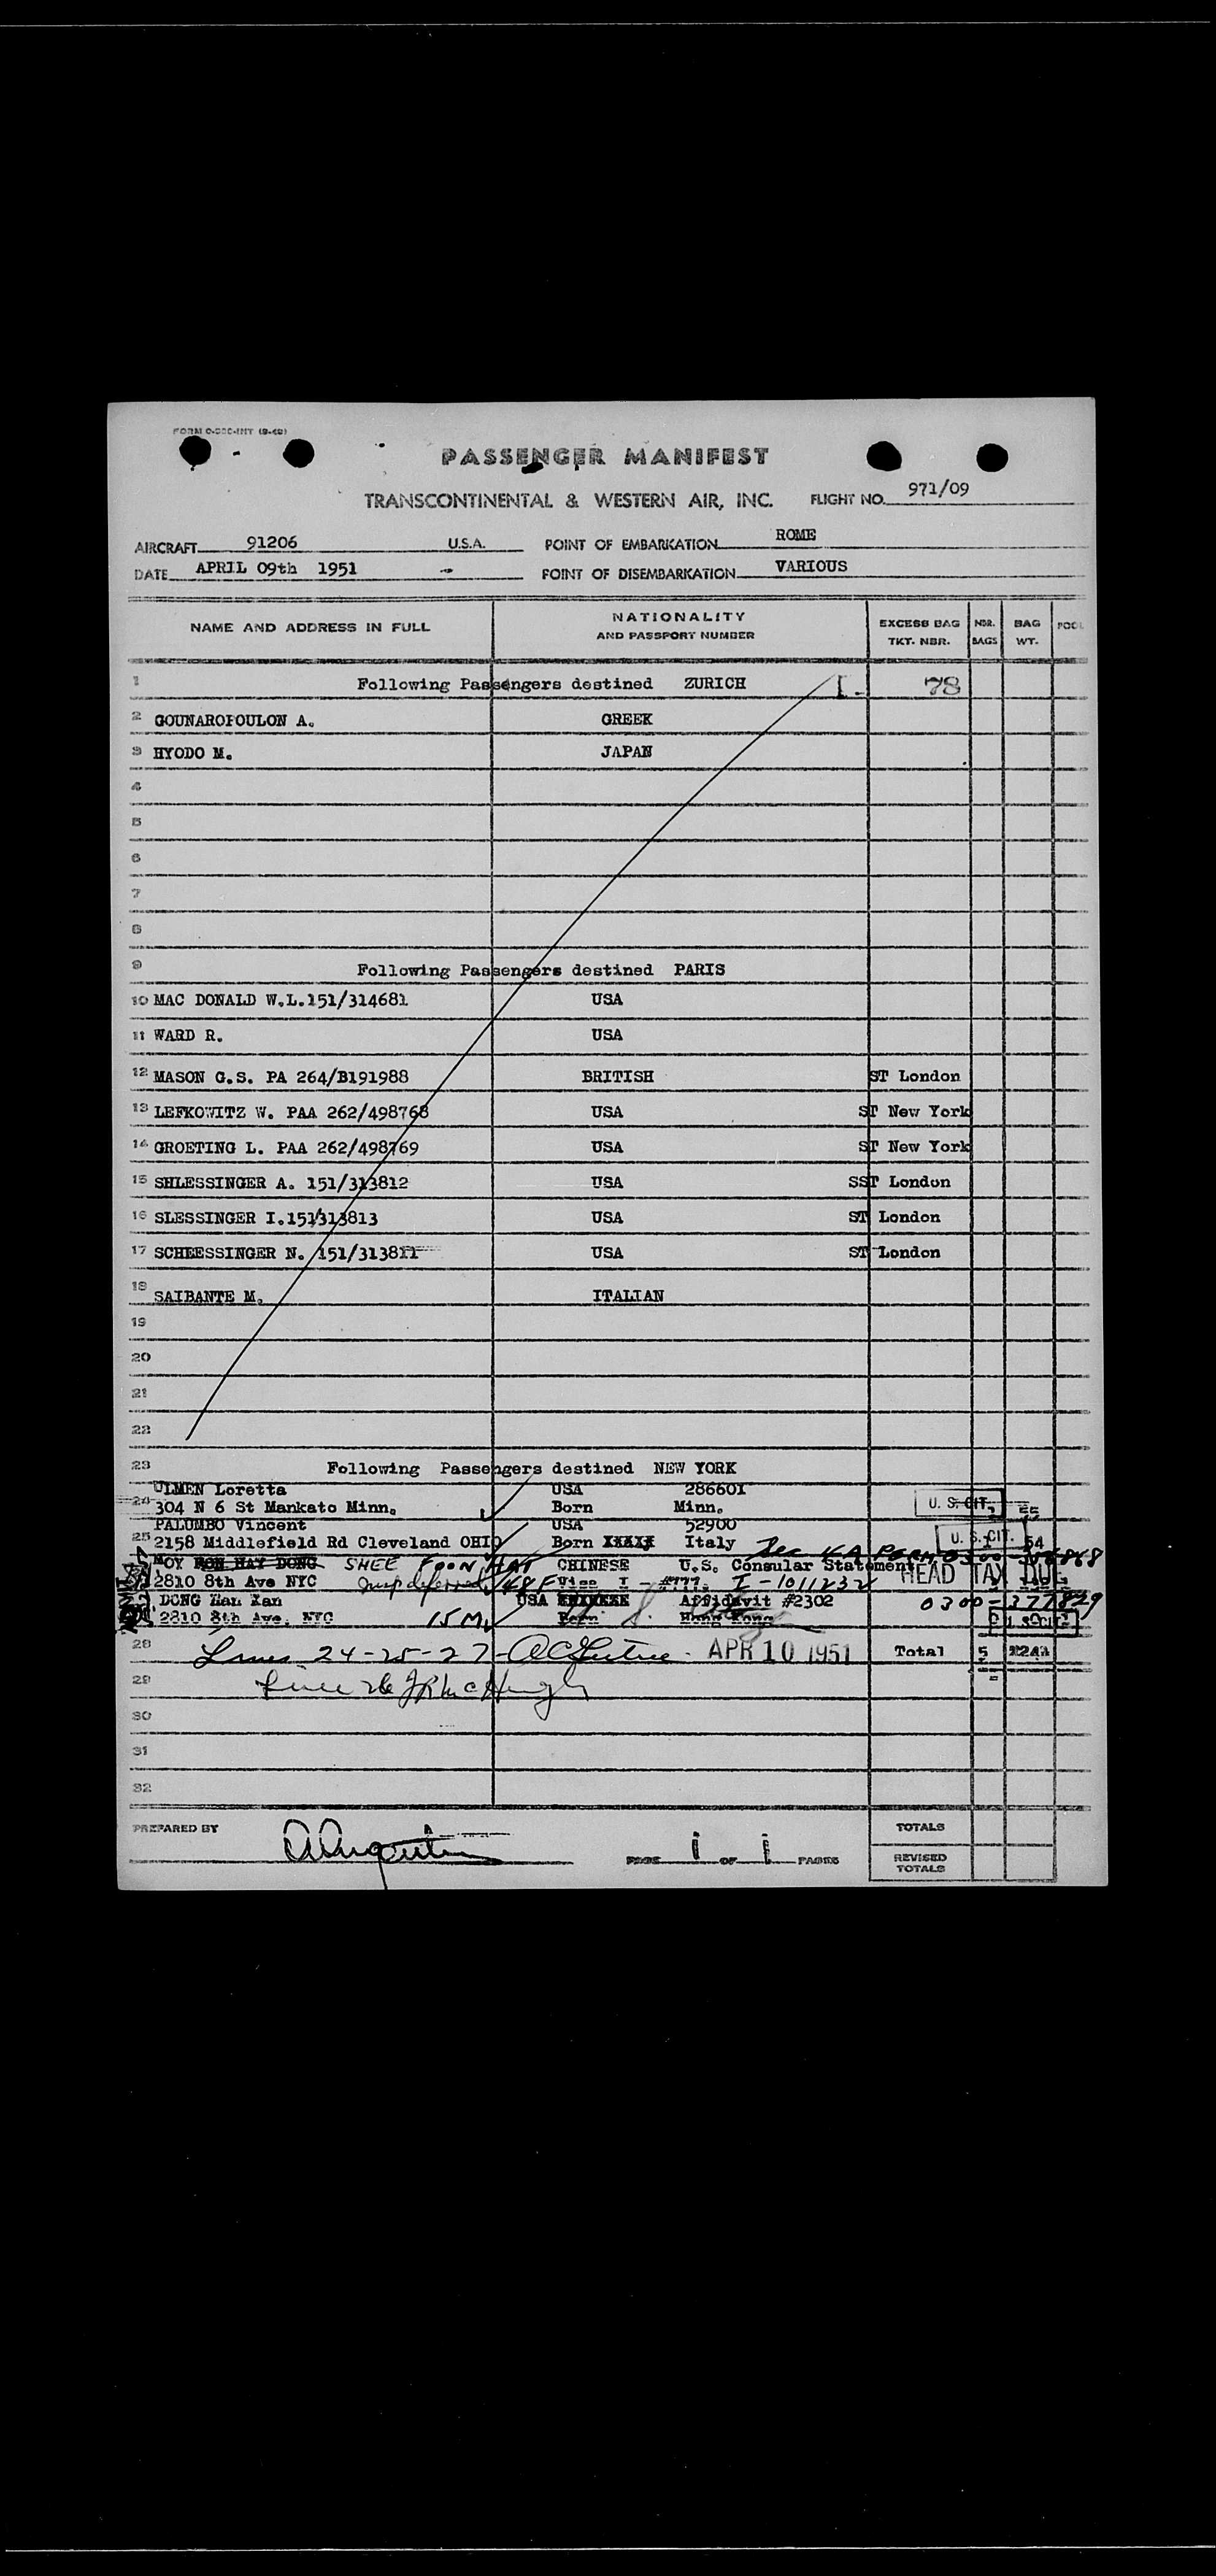 PASSENGER MANIFEST
TRANSCONTINENTAL & WESTERN AIR, INC. FLIGHT NO. 971/09
AIRCRAFT 91206 U.S.A. POINT OF EMBARKATION ROME
DATE APRIL 09th 1951 POINT OF DISEMBARKATION VARIOUS
NAME AND ADDRESS IN FULL NATIONALITY AND PASSPORT NUMBER EXCESS BAG TKT. NBR. NBR. BAGS BAG WT. POOL
1 Following Passengers destined ZURICH I. 78
2 GOUNAROPOULON A. GREEK
3 HYODO M. JAPAN
4
5
6
7
8
9 Following Passengers destined PARIS
10 MAC DONALD W.L.151/314681 USA
11 WARD R. USA
12 MASON G.S. PA 264/B191988 BRITISH ST London
13 LEFKOWITZ W. PAA 262/498768 USA ST New York
14 GROETING L. PAA 262/498769 USA ST New York
15 SHLESSINGER A. 151/313812 USA SST London
16 SLESSINGER I.151/313813 USA ST London
17 SCHLESSINGER N. 151/313811 USA ST London
18 SAIBANTE M. ITALIAN
19
20
21
22
23 Following Passengers destined NEW YORK
ULMEN Loretta USA 286601
24 304 N 6 St Mankato Minn. Born Minn. U. S. CIT.
PALUMBO Vincent USA 52900
25 2158 Middlefield Rd Cleveland OHIO Born Italy U. S. CIT. 54
MOY HON HAY DONG SHEE FOON HAT CHINESE U.S. Consular Statement
2810 8th Ave NYC 48 F Visa I - #777. I-1011232 HEAD TAX DUE
DONG Han Xan USA Affidavit #2302 0300-377829
2810 8th Ave. NYC 15 M. Born Hong Kong U. S. CIT.
28 Lines 24-25-27 APR 10 1951 Total 5
29 Line 26
30
31
32
PREPARED BY PAGE 1 OF 1 PAGES TOTALS
REVISED TOTALS